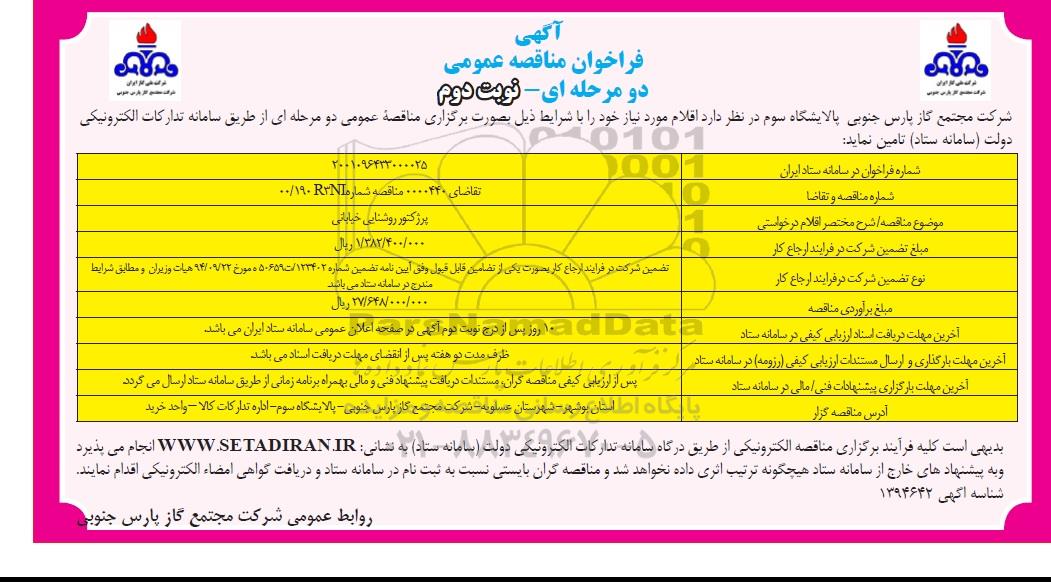 آگهی
فراخوان مناقصه عمومی
دو مرحله ای- نوبت دوم
شرکت ملی گاز ایران
شرکت مجتمع گاز پارس جنوبی
شرکت ملی گاز ایران
شرکت مجتمع گاز پارس جنوبی
شرکت مجتمع گاز پارس جنوبی پالایشگاه سوم در نظر دارد اقلام مورد نیاز خود را با شرایط ذیل بصورت برگزاری مناقصۀ عمومی دو مرحله ای از طریق سامانه تدارکات الکترونیکی
دولت (سامانه ستاد) تامین نماید:
شماره فراخوان در سامانه ستاد ایران
۲۰۰۱۰۹۶۴۳۳۰۰۰۰۲۵
شماره مناقصه و تقاضا
تقاضای ۰۰۰۰۴۴۰ مناقصه شماره R۳NI ۰۰/۱۹۰
موضوع مناقصه/ شرح مختصر اقلام درخواستی
پرژکتور روشنایی خیابانی
مبلغ تضمین شرکت در فرایند ارجاع کار
۱/۳۸۲/۴۰۰/۰۰۰ ریال
نوع تضمین شرکت درفرایند ارجاع کار
تضمین شرکت در فرایند ارجاع کار بصورت یکی از تضامین قابل قبول وفق آیین نامه تضمین شماره ۱۲۳۴۰۲/ت۵۰۶۵۹ ه مورخ ۹۴/۰۹/۲۲ هیات وزیران و مطابق شرایط
مندرج در سامانه ستاد می باشد.
مبلغ برآوردی مناقصه
۲۷/۶۴۸/۰۰۰/۰۰۰ ریال
آخرین مهلت دریافت اسناد ارزیابی کیفی در سامانه ستاد
۱۰ روز پس از درج نوبت دوم آگهی در صفحه اعلان عمومی سامانه ستاد ایران می باشد.
آخرین مهلت بارگذاری و ارسال مستندات ارزیابی کیفی (رزومه) در سامانه ستاد
ظرف مدت دو هفته پس از انقضای مهلت دریافت اسناد می باشد.
آخرین مهلت بارگزاری پیشنهادات فنی/ مالی در سامانه ستاد
پس از ارزیابی کیفی مناقصه گران، مستندات دریافت پیشنهاد فنی و مالی بهمراه برنامه زمانی از طریق سامانه ستاد ارسال می گردد.
آدرس مناقصه گزار
استان بوشهر-شهرستان عسلویه-شرکت مجتمع گاز پارس جنوبی-پالایشگاه سوم-اداره تدارکات کالا –واحد خرید
ParsNamadData
بدیهی است کلیه فرآیند برگزاری مناقصه الکترونیکی از طریق درگاه سامانه تدارکات الکترونیکی دولت (سامانه ستاد) به نشانی: WWW.SETADIRAN.IR انجام می پذیرد
وبه پیشنهاد های خارج از سامانه ستاد هیچگونه ترتیب اثری داده نخواهد شد و مناقصه گران بایستی نسبت به ثبت نام در سامانه ستاد و دریافت گواهی امضاء الکترونیکی اقدام نمایند.
شناسه اگهی ۱۳۹۴۶۴۲
روابط عمومی شرکت مجتمع گاز پارس جنوبی